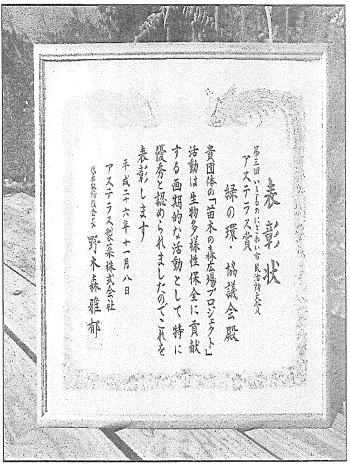 表彰状
第三回いきものにぎわい市民活動大賞
アステラス賞
緑の環・協議会殿
貴団体の「苗木の森広場プロジェクト」
活動は生物多様性保全に貢献
する画期的な活動として特に
優秀と認められましたのでこれを
表彰します
平成二十六年十一月八日
アステラス製薬株式会社
野木森雅郁